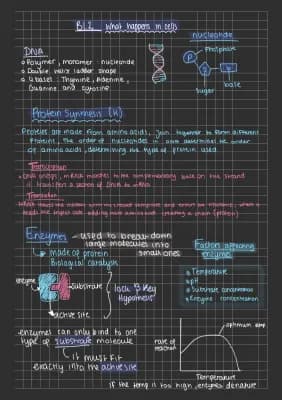 B1.2 What happens in cells
nucleotide
Phosphate
P
sugar
base
DNA
Polymer, monomer nucleotide
Double helix ladder shape
4 bases: Thymine, Adenine,
Guanine and cytosine
Protein Synthesis (H)
Proteins are made from amino acids, join together to form different
proteins, the order of nucleotides in DNA determine the order
of amino acids, determining the type of protein used
Transcription
DNA unzips, mRNA matches to the complementary base on the strand
transfers a section of DNA to mRNA
Translation
Enzymes - used to break down
large molecules into
small ones
made of protein
Biological catalysts
enzyme
substrate
active site
lock & key
hypothesis
Factors affecting
enzymes
Temperature
pH
Substrate concentration
Enzyme concentration
enzymes can only bind to one
type of substrate molecule
it must fit
exactly into the active site
rate of
reaction
optimum temp
Temperature
if the temp is too high, enzymes denature